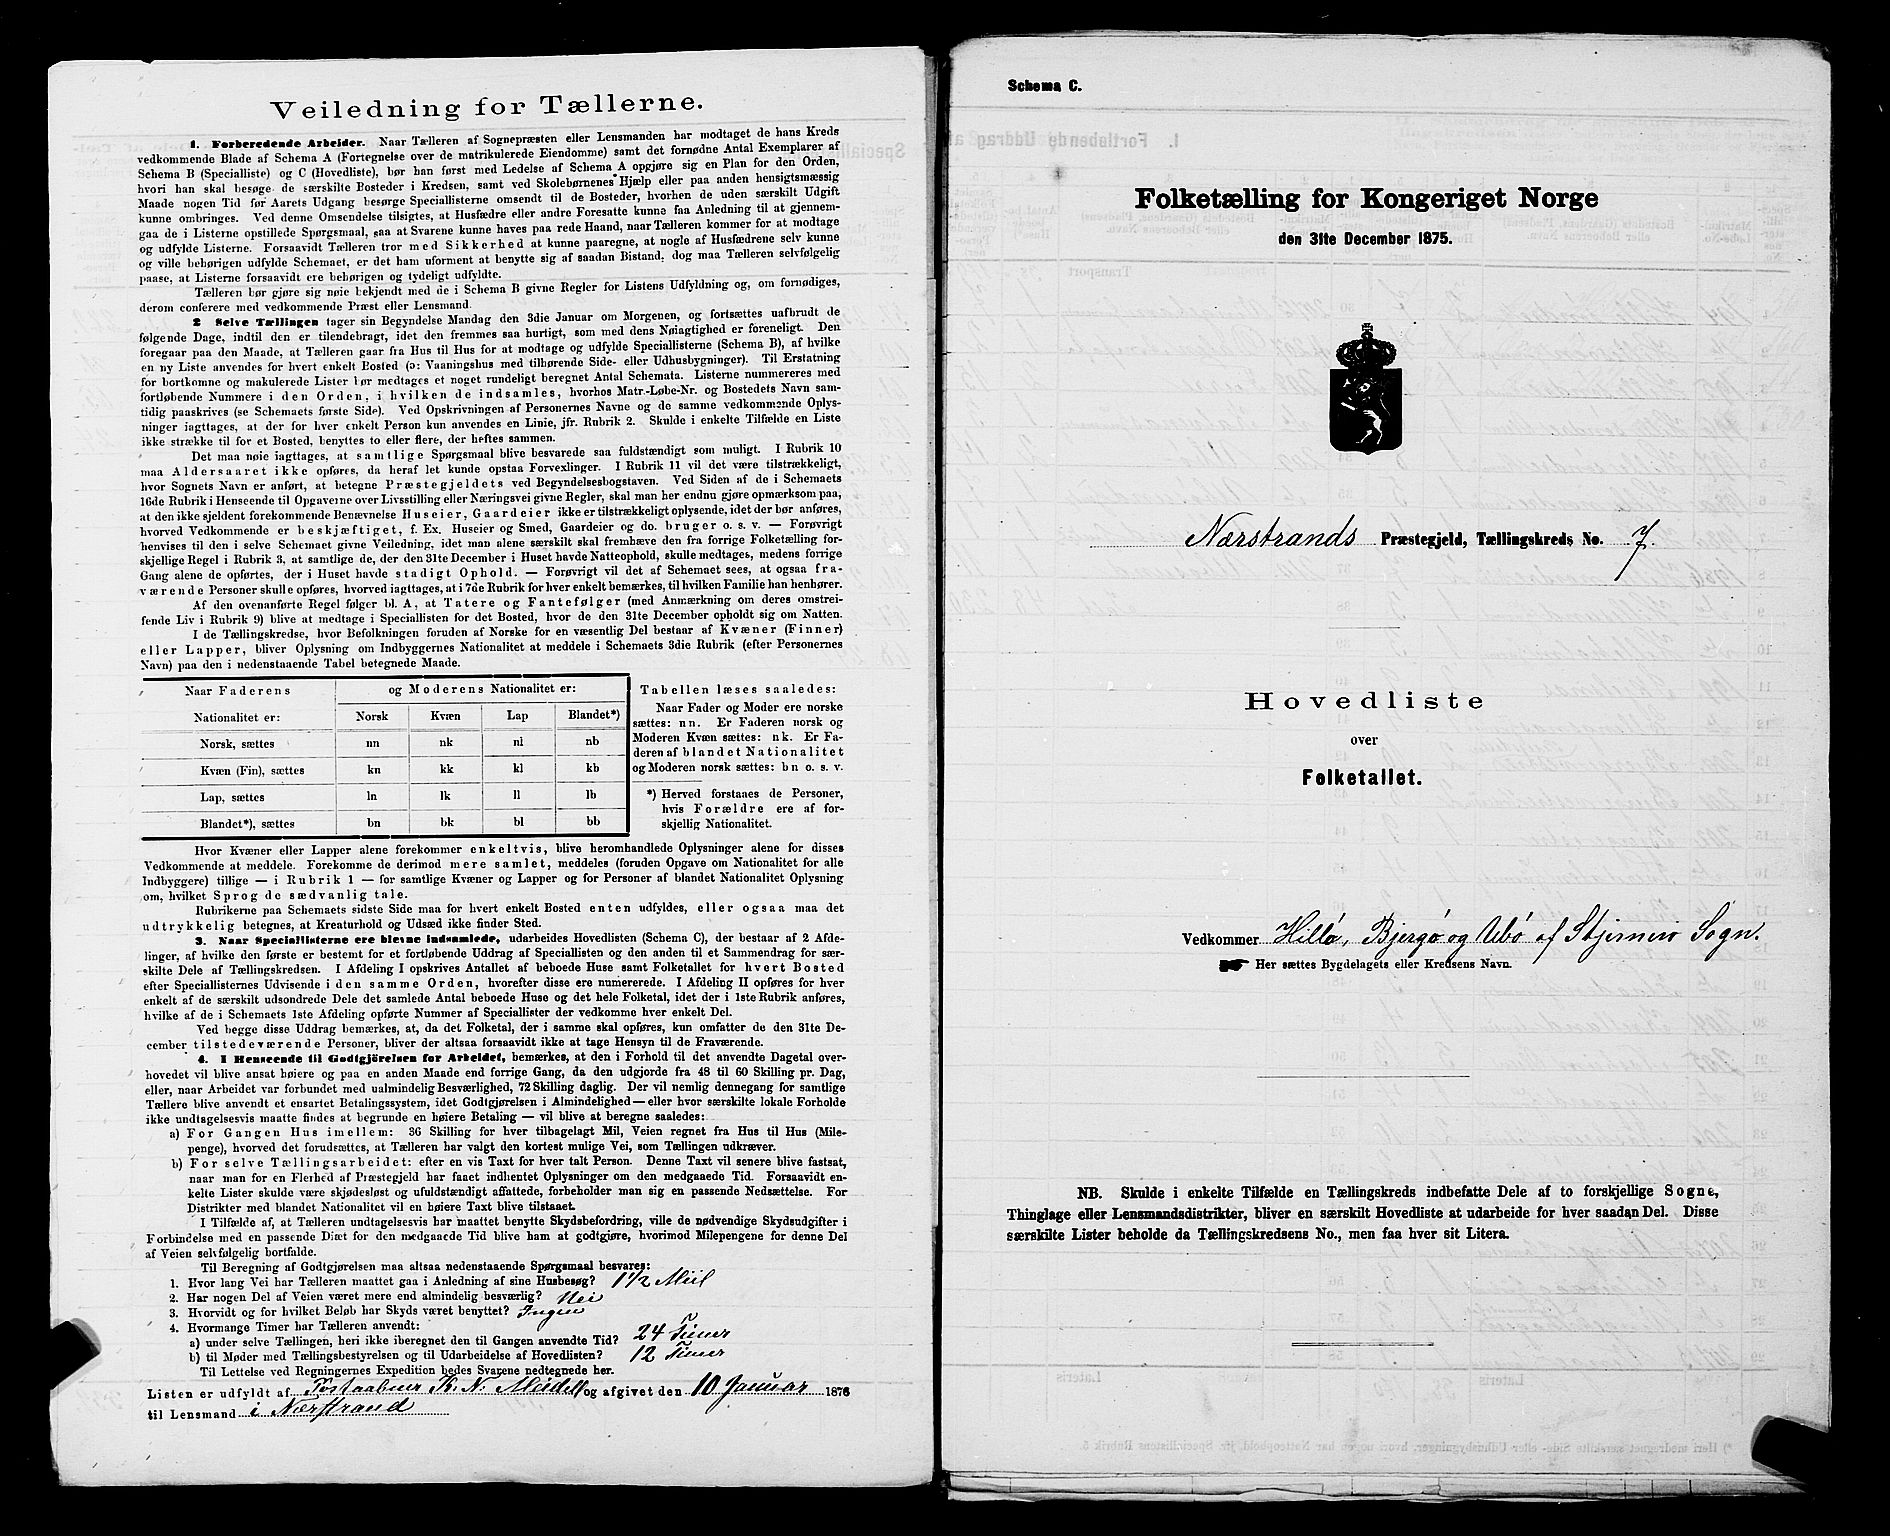 Veiledning for Tællerne.
1. Forberedende Arbeider. Naar Tælleren af Sognepræsten eller Lensmanden har modtaget de hans Kreds
vedkommende Blade af Schema A (Fortegnelse over de matrikulerede Eiendomme) samt det fornødne Antal Exemplarer af
Schema B (Specialliste) og C (Hovedliste), bør han først med Ledelse af Schema A opgjøre sig en Plan for den Orden,
hvori han skal besøge de særskilte Bosteder i Kredsen, samt ved Skolebørnenes Hjælp eller paa anden hensigtsmæssig
Maade nogen Tid før Aarets Udgang besørge Speciallisterne omsendt til de Bosteder, hvorhen de uden særskilt Udgift
kunne ombringes. Ved denne Omsendelse tilsigtes, at Husfædre eller andre Foresatte kunne faa Anledning til at gjennem-
gaa de i Listerne opstillede Spørgsmaal, saa at Svarene kunne haves paa rede Haand, naar Tælleren kommer for at modtage
og udfylde Listerne. Forsaavidt Tælleren tror med Sikkerhed at kunne paaregne, at nogle af Husfædrene selv kunne
og ville behørigen udfylde Schemaet, er det ham uforment at benytte sig af saadan Bistand, dog maa Tælleren selvfølgelig
paase, at Listerne forsaavidt ere behørigen og tydeligt udfyldte.
Tælleren bør gjøre sig nøie bekjendt med de i Schema B givne Regler for Listens Udfyldning og, om fornødiges,
derom conferere med vedkommende Præst eller Lensmand.
2 Selve Tællingen tager sin Begyndelse Mandag den 3die Januar om Morgenen, og fortsættes uafbrudt de
følgende Dage, indtil den er tilendebragt, idet den fremmes saa hurtigt, som med dens Nøiagtighed er foreneligt. Den
foregaar paa den Maade, at Tælleren gaar fra Hus til Hus for at modtage og udfylde Speciallisterne (Schema B), af hvilke
en ny Liste anvendes for hvert enkelt Bosted (ɔ: Vaaningshus med tilhørende Side- eller Udhusbygninger). Til Erstatning
for bortkomne og makulerede Lister bør medtages et noget rundeligt beregnet Antal Schemata. Listerne nummereres med
fortløbende Nummere i den Orden, i hvilken de indsamles, hvorhos Matr.-Løbe-Nr. og Bostedets Navn sam-
tidig paaskrives (se Schemaets første Side). Ved Opskrivningen af Personernes Navne og de samme vedkommende Oplys-
ninger iagttages, at der for hver enkelt Person kun anvendes en Linie, jfr. Rubrik 2. Skulde i enkelte Tilfælde en Liste
ikke strække til for et Bosted, benyttes to eller flere, der heftes sammen.
Det maa nøie iagttages, at samtlige Spørgsmaal blive besvarede saa fuldstændigt som muligt. I Rubrik 10
maa Aldersaaret ikke opføres, da heraf let kunde opstaa Forvexlinger. I Rubrik 11 vil det være tilstrækkeligt,
hvor Sognets Navn er anført, at betegne Præstegjeldets ved Begyndelsesbogstaven. Ved Siden af de i Schemaets
16de Rubrik i Henseende til Opgaverne over Livsstilling eller Næringsvei givne Regler, skal man her endnu gjøre opmærksom paa,
at den ikke sjeldent forekommende Benævnelse Huseier, Gaardeier ikke er tilstrækkeligt oplysende, idet der bør anføres,
hvorved Vedkommende er beskjæftiget, f. Ex. Huseier og Smed, Gaardeier og do. bruger o. s. v. — Forøvrigt
henvises til den i selve Schemaet givne Veiledning, idet man alene særskilt skal fremhæve den fra forrige Folketælling for-
skjellige Regel i Rubrik 3, at samtlige de, der den 31te December i Huset havde Natteophold, skulle medtages, medens forrige
Gang alene de opførtes, der i Huset havde stadigt Ophold. — Forøvrigt vil det af Schemaet sees, at ogsaa fra-
værende Personer skulle opføres, hvorved iagttages, at i 7de Rubrik for hver enkelt bemærkes, til hvilken Familie han henhører.
Af den ovenanførte Regel følger bl. A, at Tatere og Fantefølger (med Anmærkning om deres omstrei-
fende Liv i Rubrik 9) blive at medtage i Speciallisten for det Bosted, hvor de den 31te December opholdt sig om Natten.
I de Tællingskredse, hvor Befolkningen foruden af Norske for en væsentlig Del bestaar af Kvæner (Finner)
eller Lapper, bliver Oplysning om Indbyggernes Nationalitet at meddele i Schemaets 3die Rubrik (efter Personernes
Navn) paa den i nedenstaaende Tabel betegnede Maade.
Naar Faderens og Moderens Nationalitet er:
Nationalitet er: Norsk Kvæn Lap Blandet*)
Norsk, sættes nn nk nl nb
Kvæn (Fin), sættes kn kk kl kb
Lap, sættes ln lk ll lb
Blandet*), sættes bn bk bl bb
Tabellen læses saaledes:
Naar Fader og Moder ere norske
sættes: nn. Er Faderen norsk og
Moderen Kvæn sættes: nk. Er Fa-
deren af blandet Nationalitet
og Moderen norsk sættes: bn o. s. v.
*) Herved forstaaes de Personer,
hvis Forældre ere af for-
skjellig Nationalitet.
Hvor Kvæner eller Lapper alene forekommer enkeltvis, blive heromhandlede Oplysninger alene for disses
Vedkommende at meddele. Forekomme de derimod mere samlet, meddeles (foruden Opgave om Nationalitet for alle
Indbyggere) tillige — i Rubrik 1 — for samtlige Kvæner og Lapper og for Personer af blandet Nationalitet Oplysning
om, hvilket Sprog de sædvanlig tale.
Rubrikerne paa Schemaets sidste Side maa for hvert enkelt Bosted enten udfyldes, eller ogsaa maa det
udtrykkelig betegnes, at Kreaturhold og Udsæd ikke finder Sted.
3. Naar Speciallisterne ere blevne indsamlede, udarbeides Hovedlisten (Schema C), der bestaar af 2 Afde-
linger, af hvilke den første er bestemt for et fortløbende Uddrag af Speciallisten og den anden til et Sammendrag for sær-
skilte Dele af Tællingskredsen. I Afdeling I opskrives Antallet af beboede Huse samt Folketallet for hvert Bosted
efter Speciallisternes Udvisende i den samme Orden, hvorefter disse ere nummererede. I Afdeling II opføres for hver
enkelt af de særskilt udsondrede Dele det samlede Antal beboede Huse og det hele Folketal, idet der i 1ste Rubrik anføres,
hvilke af de i Schemaets 1ste Afdeling opførte Nummer af Speciallister der vedkomme hver enkelt Del.
Ved begge disse Uddrag bemærkes, at, da det Folketal, der i samme skal opføres, kun omfatter de den 31te De-
cember tilstedeværende Personer, bliver der altsaa forsaavidt ikke at tage Hensyn til de Fraværende.
4. I Henseende til Godtgjörelsen for Arbeidet, bemærkes, at den i Forhold til det anvendte Dagetal over-
hovedet vil blive ansat høiere og paa en anden Maade end forrige Gang, da den udgjorde fra 48 til 60 Skilling pr. Dag,
eller, naar Arbeidet var forbundet med ualmindelig Besværlighed, 72 Skilling daglig. Der vil nemlig dennegang for samtlige
Tællere blive anvendt et ensartet Betalingssystem, idet Godtgjørelsen i Almindelighed — eller hvor særskilte lokale Forholde
ikke undtagelsesvis maatte findes at begrunde en høiere Betaling — vil blive at beregne saaledes:
a) For Gangen Hus imellem: 36 Skilling for hver tilbagelagt Mil, Veien regnet fra Hus til Hus (Mile-
penge), hvorved det forudsættes, at Tælleren har valgt den kortest mulige Vei, som Tællingen udkræver.
b) For selve Tællingsarbeidet: efter en vis Taxt for hver talt Person. Denne Taxt vil senere blive fastsat,
naar man for en Flerhed af Præstegjeld har faaet indhentet Oplysninger om den medgaaede Tid. Forsaavidt en-
kelte Lister skulde være skjødesløst og ufuldstændigt affattede, forbeholder man sig en passende Nedsættelse. For
Distrikter med blandet Nationalitet vil en høiere Taxt blive tilstaaet.
I Tilfælde af, at Tælleren undtagelsesvis har maattet benytte Skydsbefordring, ville de nødvendige Skydsudgifter i
Forbindelse med en passende Diæt for den medgaaede Tid blive ham at godtgjøre, hvorimod Milepengene for denne Del
af Veien selvfølgelig bortfalde.
Til Beregning af Godtgjørelsen maa altsaa nedenstaaende Spørgsmaal besvares:
1. Hvor lang Vei har Tælleren maattet gaa i Anledning af sine Husbesøg? 1 1/2 Miil
2. Har nogen Del af Veien været mere end almindelig besværlig? Nei
3. Hvorvidt og for hvilket Beløb har Skyds været benyttet? Ingen
4. Hvormange Timer har Tælleren anvendt:
a) under selve Tællingen, heri ikke iberegnet den til Gangen anvendte Tid? 24 Timer
b) til Møder med Tællingsbestyrelsen og til Udarbeidelse af Hovedlisten? 12 Timer
Til Lettelse ved Regningernes Expedition bedes Svarene nedtegnede her.
Listen er udfyldt af K. N. Meidell og afgivet den 10 Januar 1876
til Lensmand i Nærstrand
Schema C.
Folketælling for Kongeriget Norge
den 31te December 1875.
Nærstrands Præstegjeld, Tællingskreds No. 7.
Hovedliste
over
Folketallet.
Vedkommer Hillö, Bjergö og Ubö af Stjernerö Sogn.
Her sættes Bygdelagets eller Kredsens Navn.
NB. Skulde i enkelte Tilfælde en Tællingskreds indbefatte Dele af to forskjellige Sogne,
Thinglage eller Lensmandsdistrikter, bliver en særskilt Hovedliste at udarbeide for hver saadan Del. Disse
særskilte Lister beholde da Tællingskredsens No., men faa hver sit Litera.